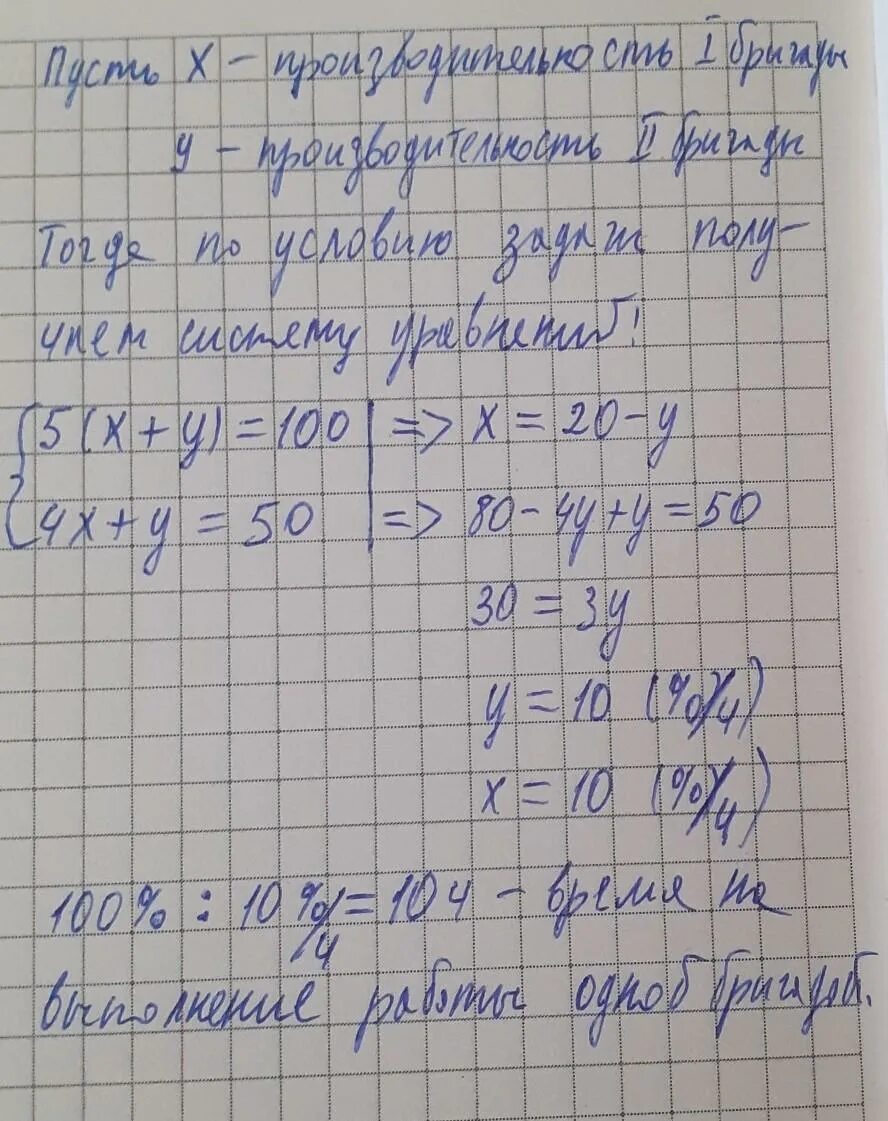 Пусть х – производительность I бригады
у – производительность II бригады
Тогда по условию задачи полу-
чаем систему уравнений:
{5(х + у) = 100 | => х = 20 – у
{4х + у = 50 | => 80 – 4у + у = 50
30 = 3у
у = 10 (%/ч)
х = 10 (%/ч)
100% : 10 %/ч = 10 ч – время на
выполнение работы одной бригадой.